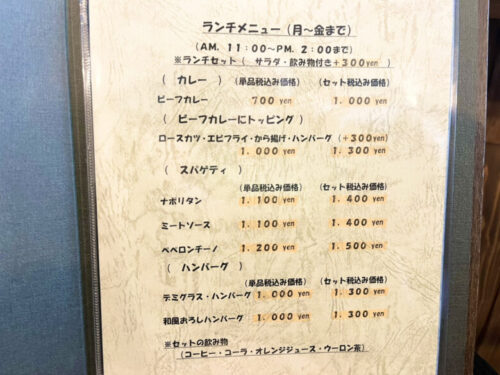 ランチメニュー（月～金まで）
（AM. 11:00～PM. 2:00まで）
※ランチセット（ サラダ・飲み物付き＋300yen ）
（ カレー ） （単品税込み価格） （セット税込み価格）
ビーフカレー 700 yen 1. 000 yen
（ ビーフカレーにトッピング ）
ロースカツ・エビフライ・から揚げ・ハンバーグ （＋300yen）
1. 000 yen 1. 300 yen
（ スパゲティ ）
（単品税込み価格） （セット税込み価格）
ナポリタン 1. 100 yen 1. 400 yen
ミートソース 1. 100 yen 1. 400 yen
ペペロンチーノ 1. 200 yen 1. 500 yen
（ ハンバーグ ）
（単品税込み価格） （セット税込み価格）
デミグラス・ハンバーグ 1. 000 yen 1. 300 yen
和風おろしハンバーグ 1. 000 yen 1. 300 yen
※セットの飲み物
（コーヒー・コーラ・オレンジジュース・ウーロン茶）